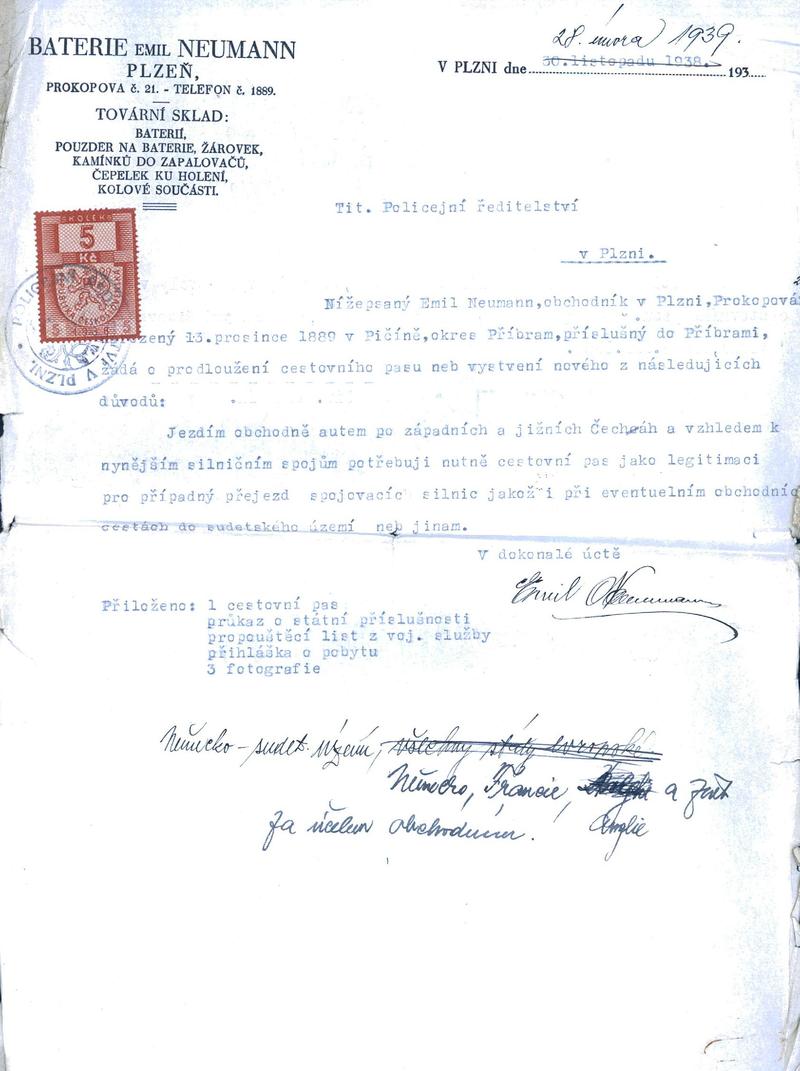 28. února 1939.
BATERIE EMIL NEUMANN
PLZEŇ,
PROKOPOVA č. 21. - TELEFON č. 1889.
V PLZNI dne 30.listopadu 1938. 193
TOVÁRNÍ SKLAD:
BATERIÍ,
POUZDER NA BATERIE, ŽÁROVEK,
KAMÍNKŮ DO ZAPALOVAČŮ,
ČEPELEK KU HOLENÍ,
KOLOVÉ SOUČÁSTI.
Tit. Policejní ředitelství
v Plzni.
KOLEK
5
Kč
Nížepsaný Emil Neumann,obchodník v Plzni,Prokopová
13.prosince 1889 v Pičíně,okres Příbram,příslušný do Příbrami,
žádá o prodloužení cestovního pasu neb vystvení nového z následujících
důvodů:
Jezdím obchodně autem po západních a jižních Čechách a vzhledem k
nynějším silničním spojům potřebuji nutně cestovní pas jako legitimaci
pro případný přejezd spojovacích silnic jakož i při eventuelním obchodníc
cestách do sudetského území neb jinam.
V dokonalé úctě
Emil Neumann
Přiloženo: 1 cestovní pas
průkaz o státní příslušnosti
propouštěcí list z voj. služby
přihláška o pobytu
3 fotografie
Německo - sudet. území, všechny státy evropské.
Německo, Francie, a
Za účelem obchodním. Anglie